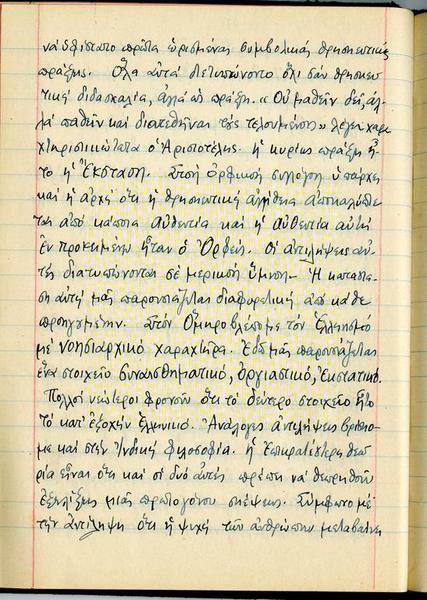 νὰ ὑφίστατο πρῶτα ὡρισμένας συμβολικὰς θρησκευτικὰς
πράξεις. Ὅλα αὐτὰ διετυπώνοντο ὄχι σὰν θρησκευ
τικὴ διδασκαλία, ἀλλὰ ὡς πρᾶξη. «Οὐ μαθεῖν δεῖ, ἀλ
λὰ παθεῖν καὶ διατεθῆναι τοὺς τελουμένους» λέγει χαρα
κτηριστικώτατα ὁ Ἀριστοτέλης. Ἡ κυρίως πρᾶξη ἦ
το ἡ Ἔκσταση. Στὴ ὀρφικὴ συλλογὴ ὑπάρχει
καὶ ἡ ἀρχὴ ὅτι ἡ θρησκευτικὴ ἀλήθεια ἀποκαλύπτε
ται ἀπὸ κάποια αὐθεντία καὶ ἡ αὐθεντία αὐτὴ
ἐν προκειμένῳ ἦταν ὁ Ὀρφεύς. Οἱ ἀντιλήψεις αὐ
τὲς διατυπώνονται σὲ μερικοὺς ὕμνους. Ἡ κατάστα
ση αὐτὴ μᾶς παρουσιάζεται διαφορετικὴ ἀπὸ κάθε
προηγουμένην. Στὸν Ὅμηρο βλέπομε τὸν Ἑλληνισμὸ
μὲ νοησιαρχικὸ χαρακτῆρα. Ἐδῶ μᾶς παρουσιάζεται
ἕνα στοιχεῖο συναισθηματικό, ὀργιαστικό, ἐκστατικό.
Πολλοὶ νεώτεροι φρονοῦν ὅτι τὸ δεύτερο στοιχεῖο ἦτο
τὸ κατ' ἐξοχὴν ἑλληνικό. Ἀνάλογες ἀντιλήψεις βρίσκο
με καὶ στὴν Ἰνδικὴ φιλοσοφία. Ἡ ἐπικρατέστερη θεω
ρία εἶναι ὅτι καὶ οἱ δυὸ αὐτὲς πρέπει νὰ θεωρηθοῦν
ἐξελίξεις μιᾶς πρωτογόνου σκέψεως. Σύμφωνα μὲ
τὴν ἀντίληψη ὅτι ἡ ψυχὴ τῶν ἀνθρώπων μεταβαίνει